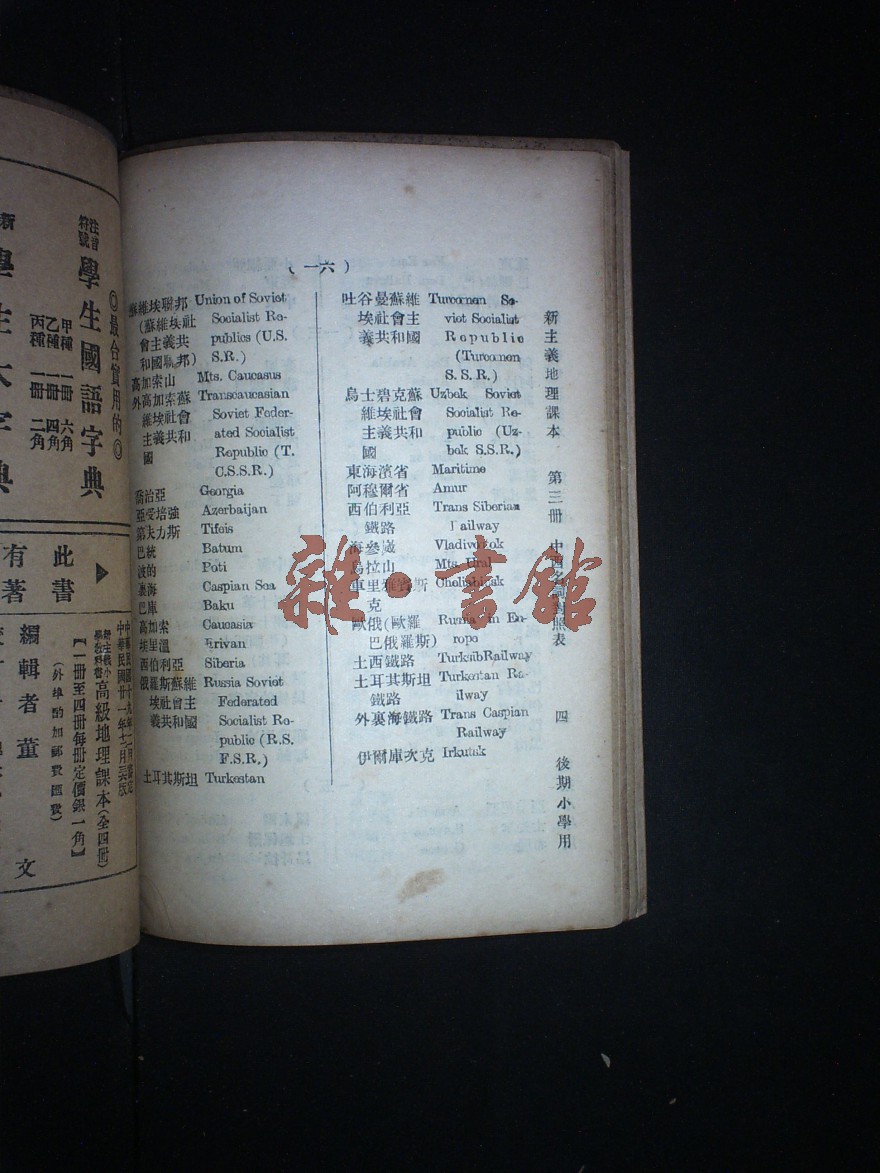 (一六)
蘇維埃聯邦 Union of Soviet
(蘇維埃社 Socialist Re-
會主義共 publics (U.S.
和國聯邦) S.R.)
高加索山 Mts. Caucasus
外高加索蘇 Transcaucasian
維埃社會 Soviet Feder-
主義共和 ated Socialist
國 Republic (T.
C.S.S.R.)
喬治亞 Georgia
亞塞培強 Azerbaijan
第夫力斯 Tifeis
巴統 Batum
波的 Poti
裏海 Caspian Sea
巴庫 Baku
高加索 Caucasia
埃里溫 Erivan
西伯利亞 Siberia
俄羅斯蘇維 Russia Soviet
埃社會主 Federated
義共和國 Socialist Re-
public (R.S.
F.S.R.)
土耳其斯坦 Turkestan
吐谷曼蘇維 Turcomen So-
埃社會主 viet Socialist
義共和國 Republic
(Turcomen
S.S.R.)
烏士碧克蘇 Uzbek Soviet
維埃社會 Socialist Re-
主義共和 public (Uz-
國 bek S.S.R.)
東海濱省 Maritime
阿穆爾省 Amur
西伯利亞 Trans Siberian
鐵路 Railway
海參崴 Vladivozok
烏拉山 Mts. Ural
車里雅賓斯
克
歐俄(歐羅 Russia in Eu-
巴俄羅斯) rope
土西鐵路 TurksibRailway
土耳其斯坦 Turkestan Ra-
鐵路 ilway
外裏海鐵路 Trans Caspian
Railway
伊爾庫次克 Irkutsk
新主義地理課本 第三冊 中西名詞對照表 四 後期小學用
◎最合實用的◎
注音符號 學生國語字典
甲種 一冊 六角
乙種 一冊 四角
丙種 一冊 二角
新學生大字典
此書
有著
高級地理課本(全四冊)
【一冊至四冊每冊定價銀一角】
(外埠酌加郵費匯費)
編輯者 董 文